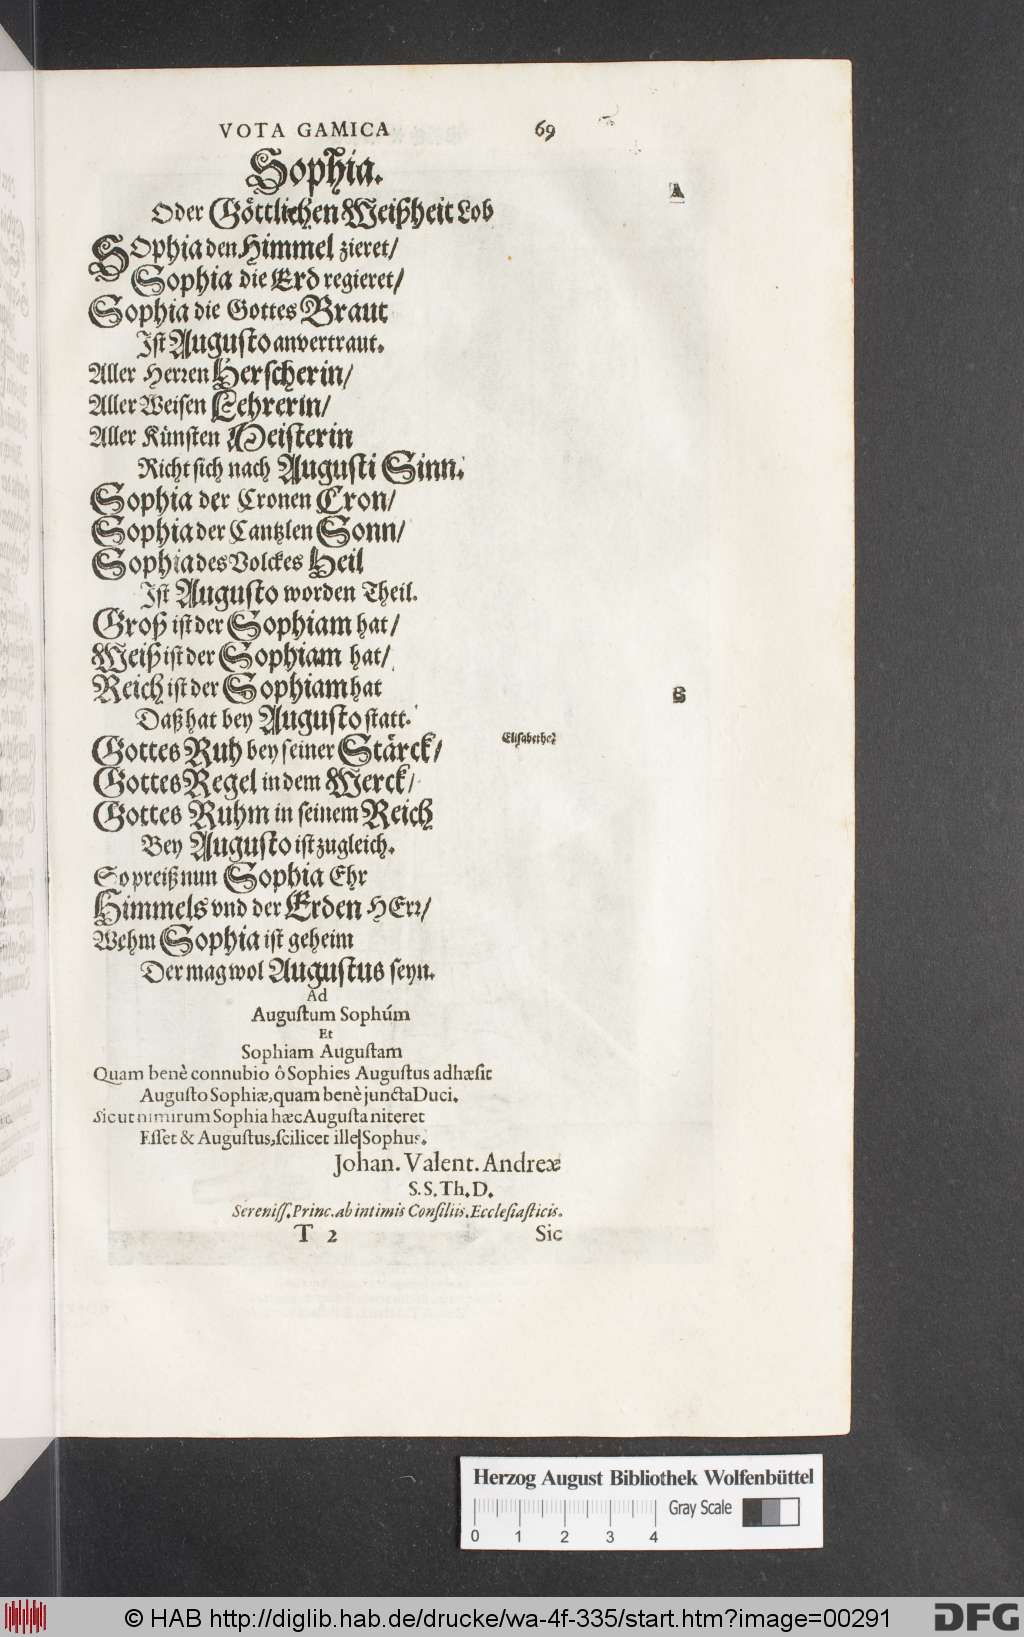 VOTA GAMICA 69
Sophia.
Oder Göttlichen Weißheit Lob
SOphia den Himmel zieret/
Sophia die Erd regieret/
Sophia die Gottes Braut
Ist Augusto anvertraut.
Aller Herren Herscherin/
Aller Weisen Lehrerin/
Aller Künsten Meisterin
Richt sich nach Augusti Sinn.
Sophia der Cronen Cron/
Sophia der Cantzlen Sonn/
Sophia des Volckes Heil
Ist Augusto worden Theil.
Groß ist der Sophiam hat/
Weiß ist der Sophiam hat/
Reich ist der Sophiam hat
Daß hat bey Augusto statt.
Gottes Ruh bey seiner Stärck/
Gottes Regel in dem Werck/
Gottes Ruhm in seinem Reich
Bey Augusto ist zugleich.
So preiß nun Sophia Ehr
Himmels vnd der Erden HErr/
Wehm Sophia ist geheim
Der mag wol Augustus seyn.
A
S
Elisabethe?
Ad
Auguſtum Sophúm
Et
Sophiam Auguſtam
Quam benè connubio ô Sophies Auguſtus adhæſit
Auguſto Sophiæ, quam benè juncta Duci.
Sic ut nimirum Sophia hæc Auguſta niteret
Eſſet & Auguſtus, ſcilicet ille Sophus.
Johan. Valent. Andreæ
S. S. Th. D.
Sereniſſ. Princ. ab intimis Conſiliis. Eccleſiaſticis.
T 2 Sic
Herzog August Bibliothek Wolfenbüttel
Gray Scale
0 1 2 3 4
© HAB http://diglib.hab.de/drucke/wa-4f-335/start.htm?image=00291
DFG